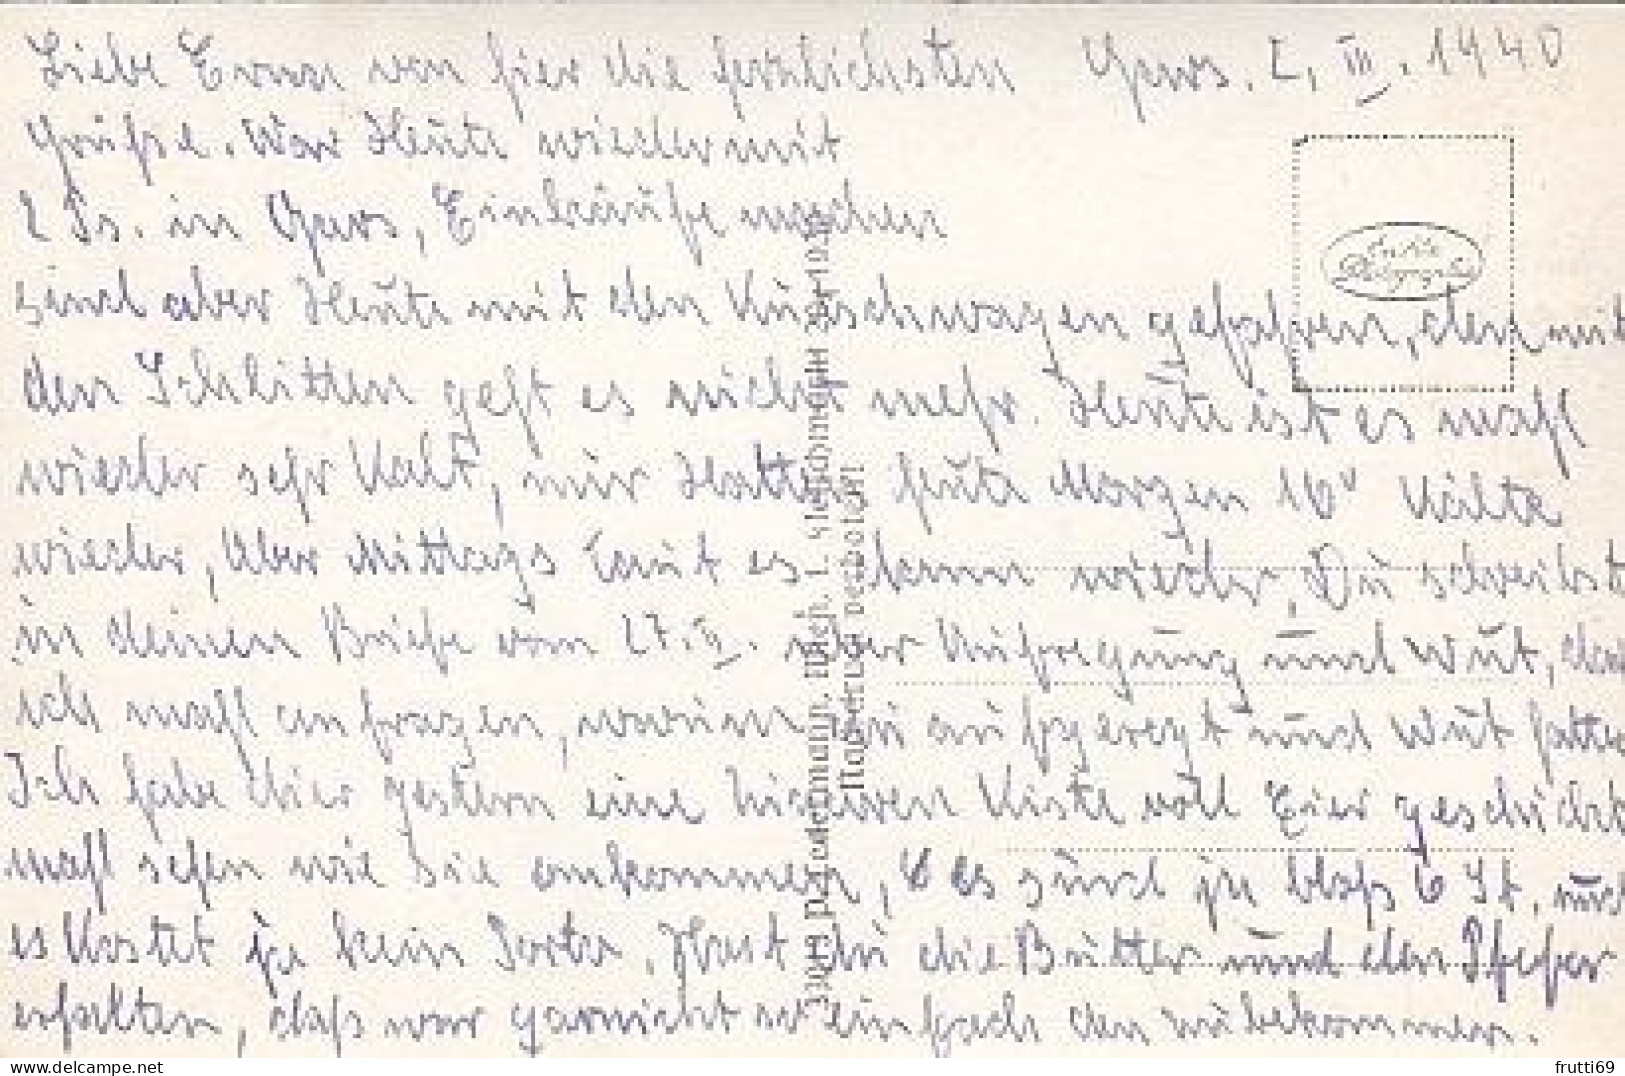 Liebe Erna von hier die herzlichsten Gurs. 2. III. 1940
Grüße. War Heute wieder mit
2 in Gurs, Einkäufe machen
sind aber Heute mit den Kutschwagen gefahren, den mit
den Schlitten geht es nicht mehr. Heute ist es mahl
wieder sehr Kalt, mir Hatten heute Morgen 10° Kälte
wieder, Aber Mittags taut es dann wieder. Du schreibst
in deinen Briefe vom 27. II. Aufregung und Wut, das
ich mahl anfragen, warum aufgeregt und Wut hatte
Ich habe dier gestern eine Kiste voll Eier geschickt
mahl sehen wie Sie ankommen, es sünd je bloß 6 St, und
es Kostet je kein Porto. Hast du die Butter und den Pfefer
erhalten, daß war garnicht so einfach den zu bekommen.
Echte
Photographie
Nachdruck verboten
frutti69
www.delcampe.net